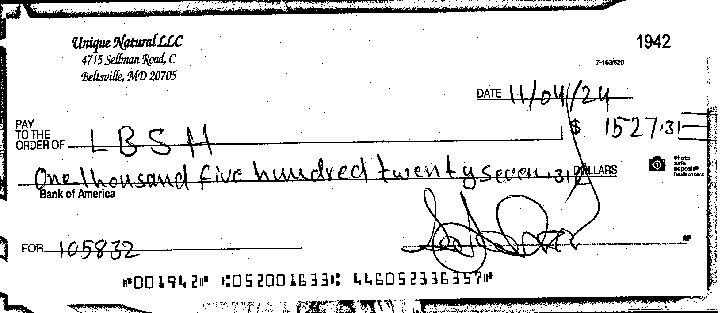 Unique Natural LLC
4715 Sellman Road, C
Beltsville, MD 20705
1942
7-163/520
DATE 11/04/24
PAY
TO THE
ORDER OF LBSH $ 1527.31
One thousand five hundred twenty seven .31 DOLLARS
Bank of America
FOR 105832
⑈001942⑈ ⑆052001633⑆ 446052336357⑈